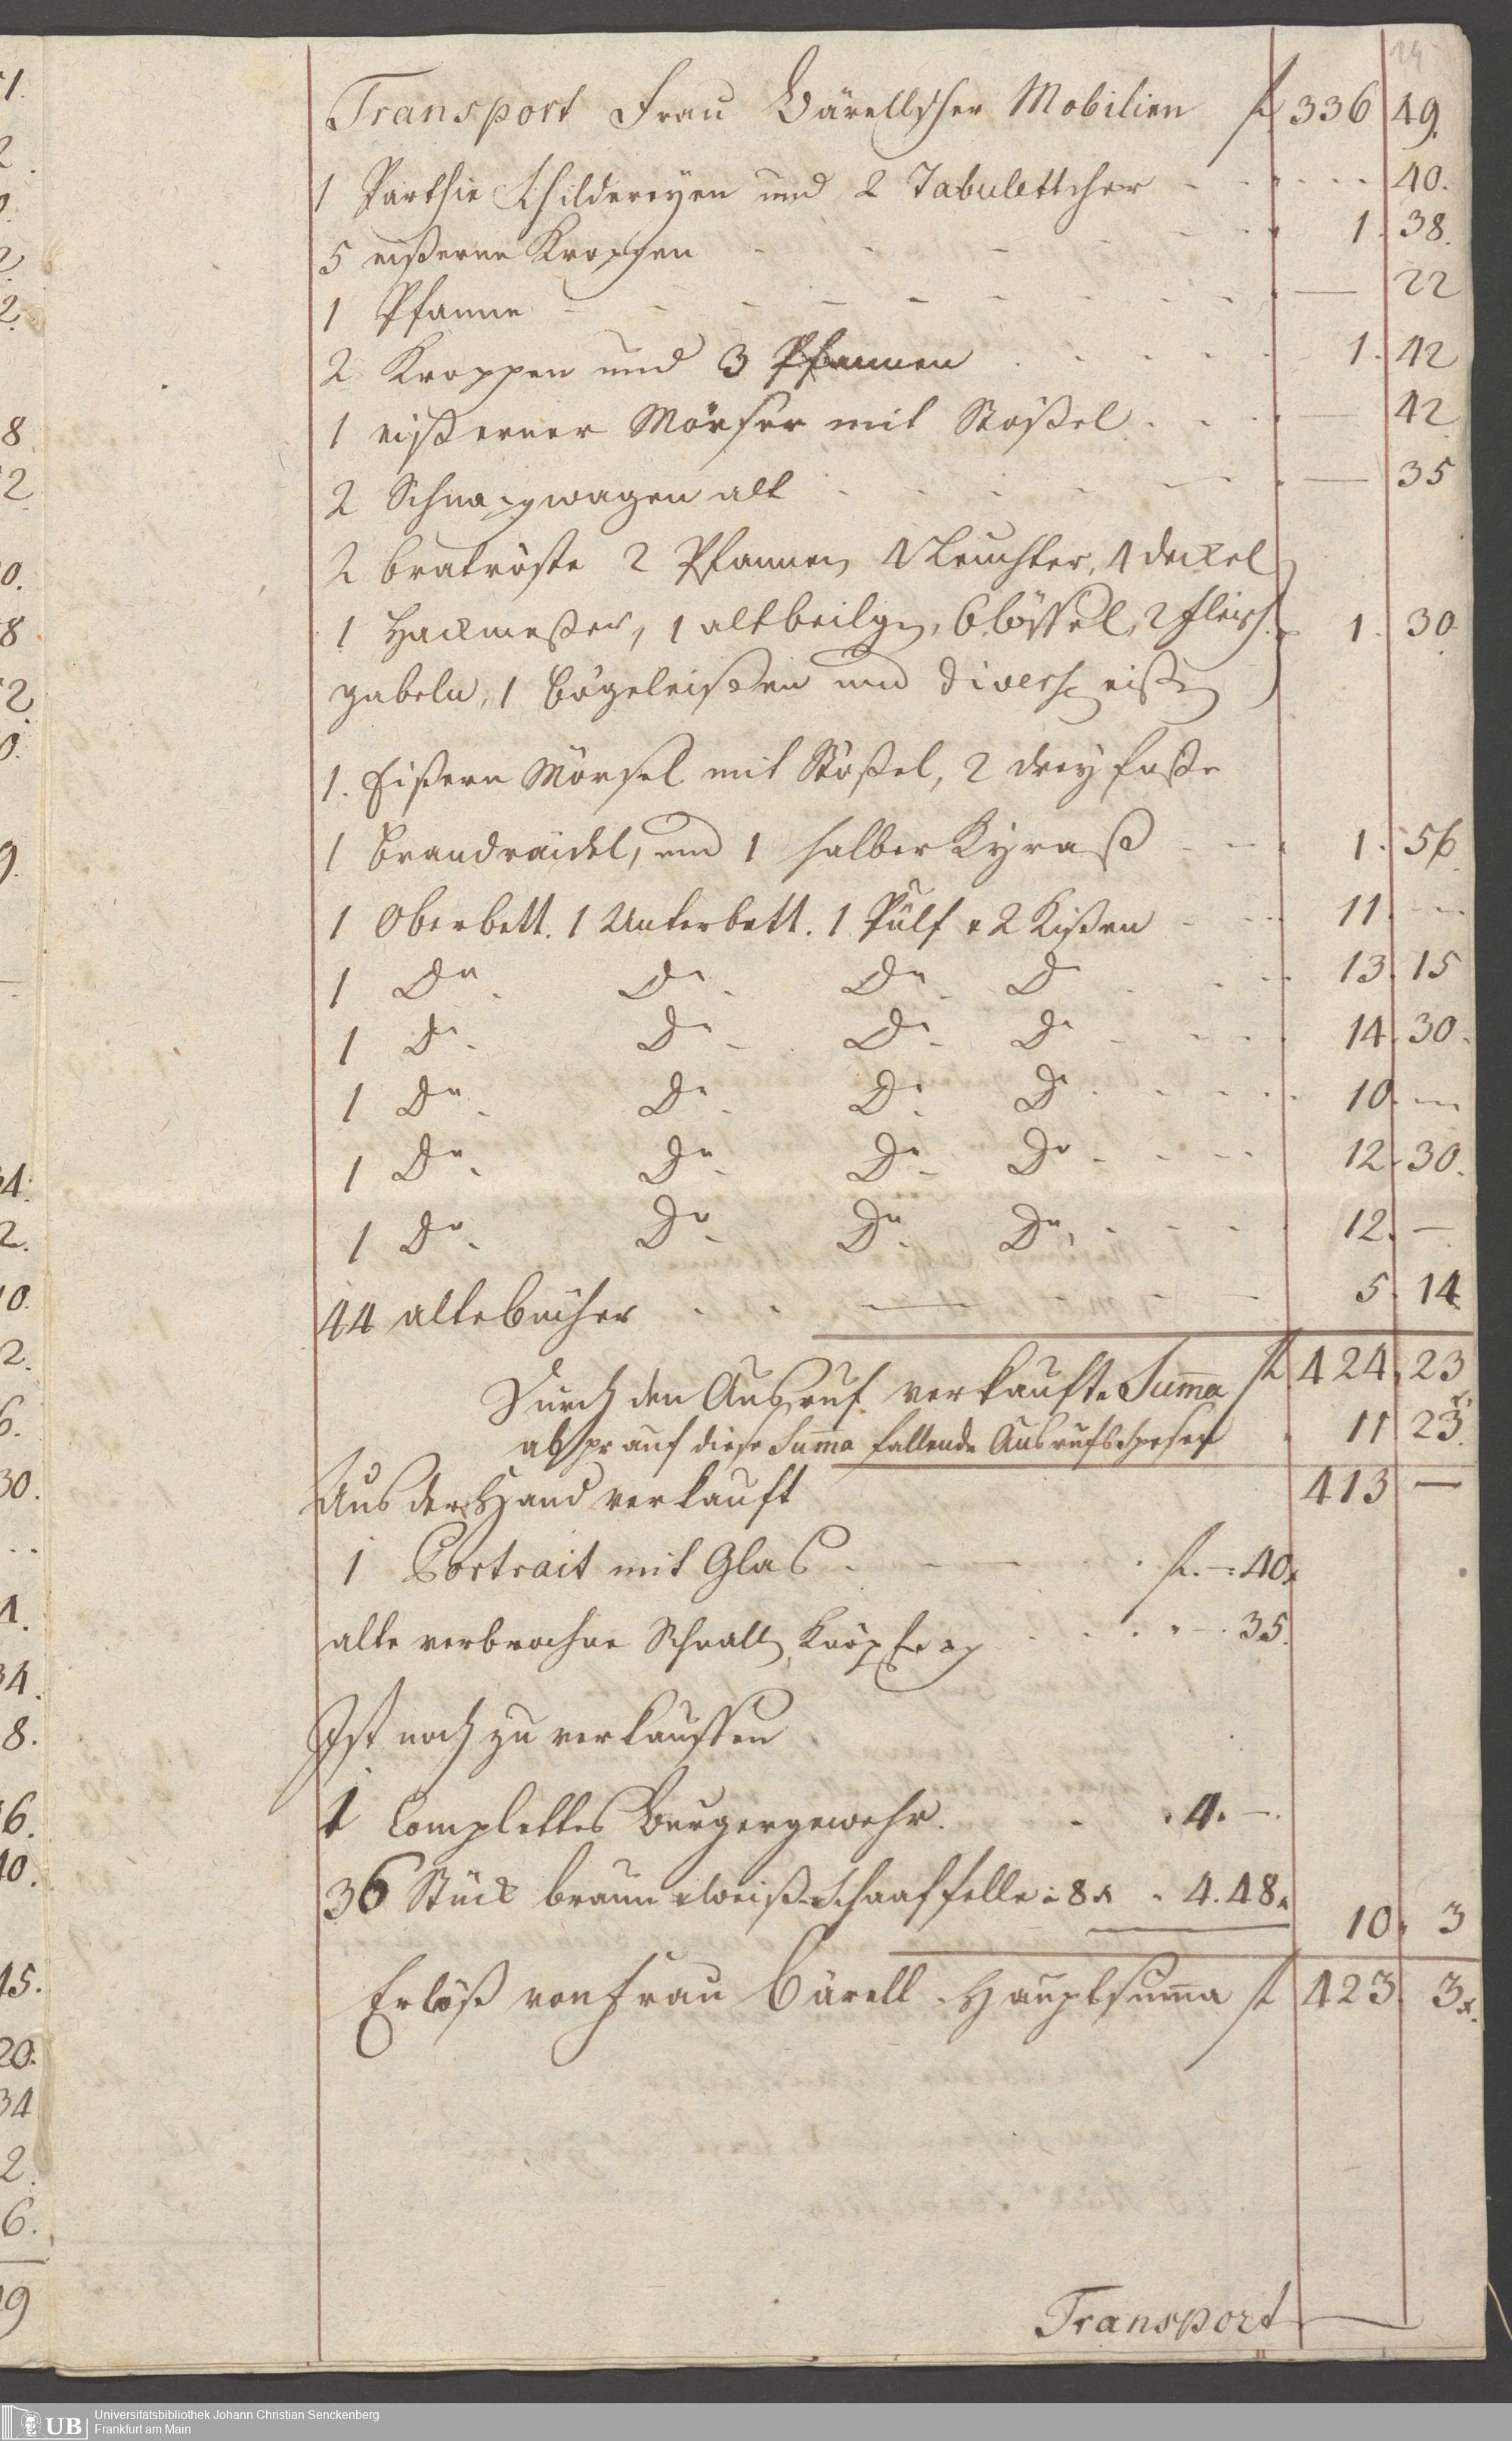 14
Transport Frau Bärellscher Mobilien f 336 49.
1 Parthie Schildereyen und 2 Tabulettcher - - - - 40.
5 eißerne Kroppen - - - - - 1. 38.
1 Pfanne - - - - - - - — 22
2 Kroppen und 3 Pfannen - - - - 1. 42
1 eißerner Mörser mit Stößel - - - — 42
2 Schnappwagen alt - - - - - — 35
2 bratröste 2 Pfannen, 4 Leuchter, 4 deckel
1 Hackmeßer, 1 alt beilgen, 6 löffel, 2 fleisch 1. 30
gabeln, 1 bögeleißen und diverse eißen
1. Eißern Mörsel mit Stößel, 2 dreyfüße
1 Brandraidel, und 1 halber Kyraß - - - 1. 56.
1 Oberbett. 1 Unterbett. 1 Pülf & 2 Kißen - - - 11. —
1 Do. Do. Do. Do - - - 13. 15
1 Do. Do. Do. Do - - - 14. 30.
1 Do. Do. Do. Do - - - 10. —
1 Do. Do. Do. Do - - - 12. 30.
1 Do. Do. Do. Do. - - - 12. —
44 alte bücher - - - - - 5. 14
Durch den Ausruf verkaufte Summa f 424. 23
ab pr auf diese Summa fallende Ausrufs Spesen 11 23.
413 —
Aus der Hand verkauft
1 Portrait mit Glas - - - f. —: 40x
alte verbrochne Schnallen, Knöpf - - - —. 35.
Ist noch zu verkauffen
1 Complettes Burgergewehr. - . 4. —.
36 Stück braun & weiß Schaaffelle à 8x . 4. 48x
10. 3
Erlöß von Frau Bärell. Hauptsumma f 423. 3x.
Transport
UB Universitätsbibliothek Johann Christian Senckenberg
Frankfurt am Main